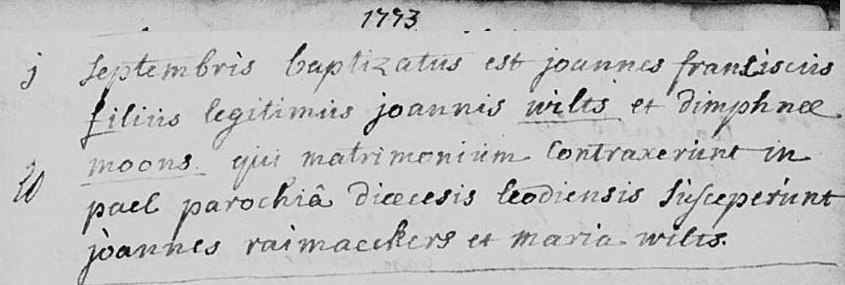 1773
j septembris baptizatus est joannes franciscus
filius legitimus joannis wilts et dimphnae
moons qui matrimonium contraxerunt in
pael parochiâ diœcesis leodiensis susceperunt
joannes raimaeckers et maria wilts.